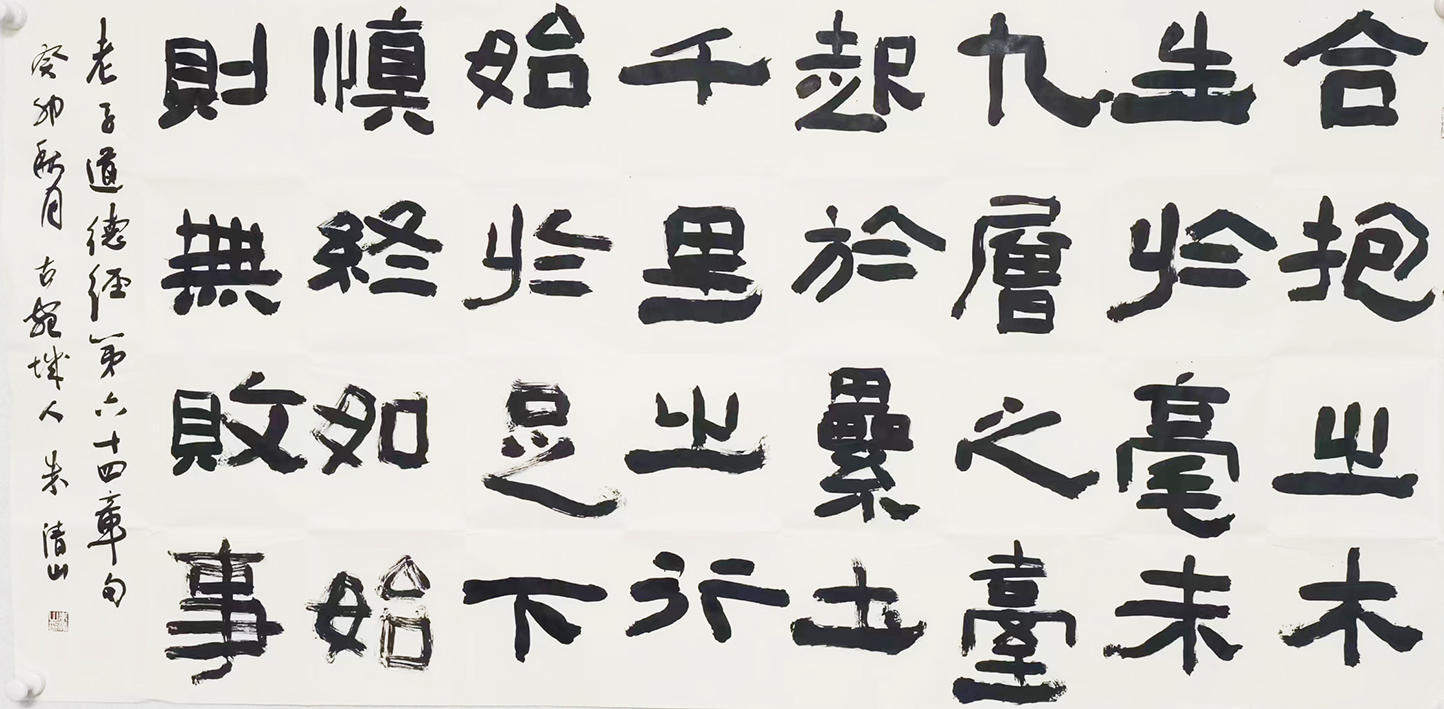 合抱之木
生於毫未
九層之臺
起於累土
千里之行
始於足下
慎終如始
則無敗事
老子道德經第六十四章句
癸卯秋月古宛城人朱清山